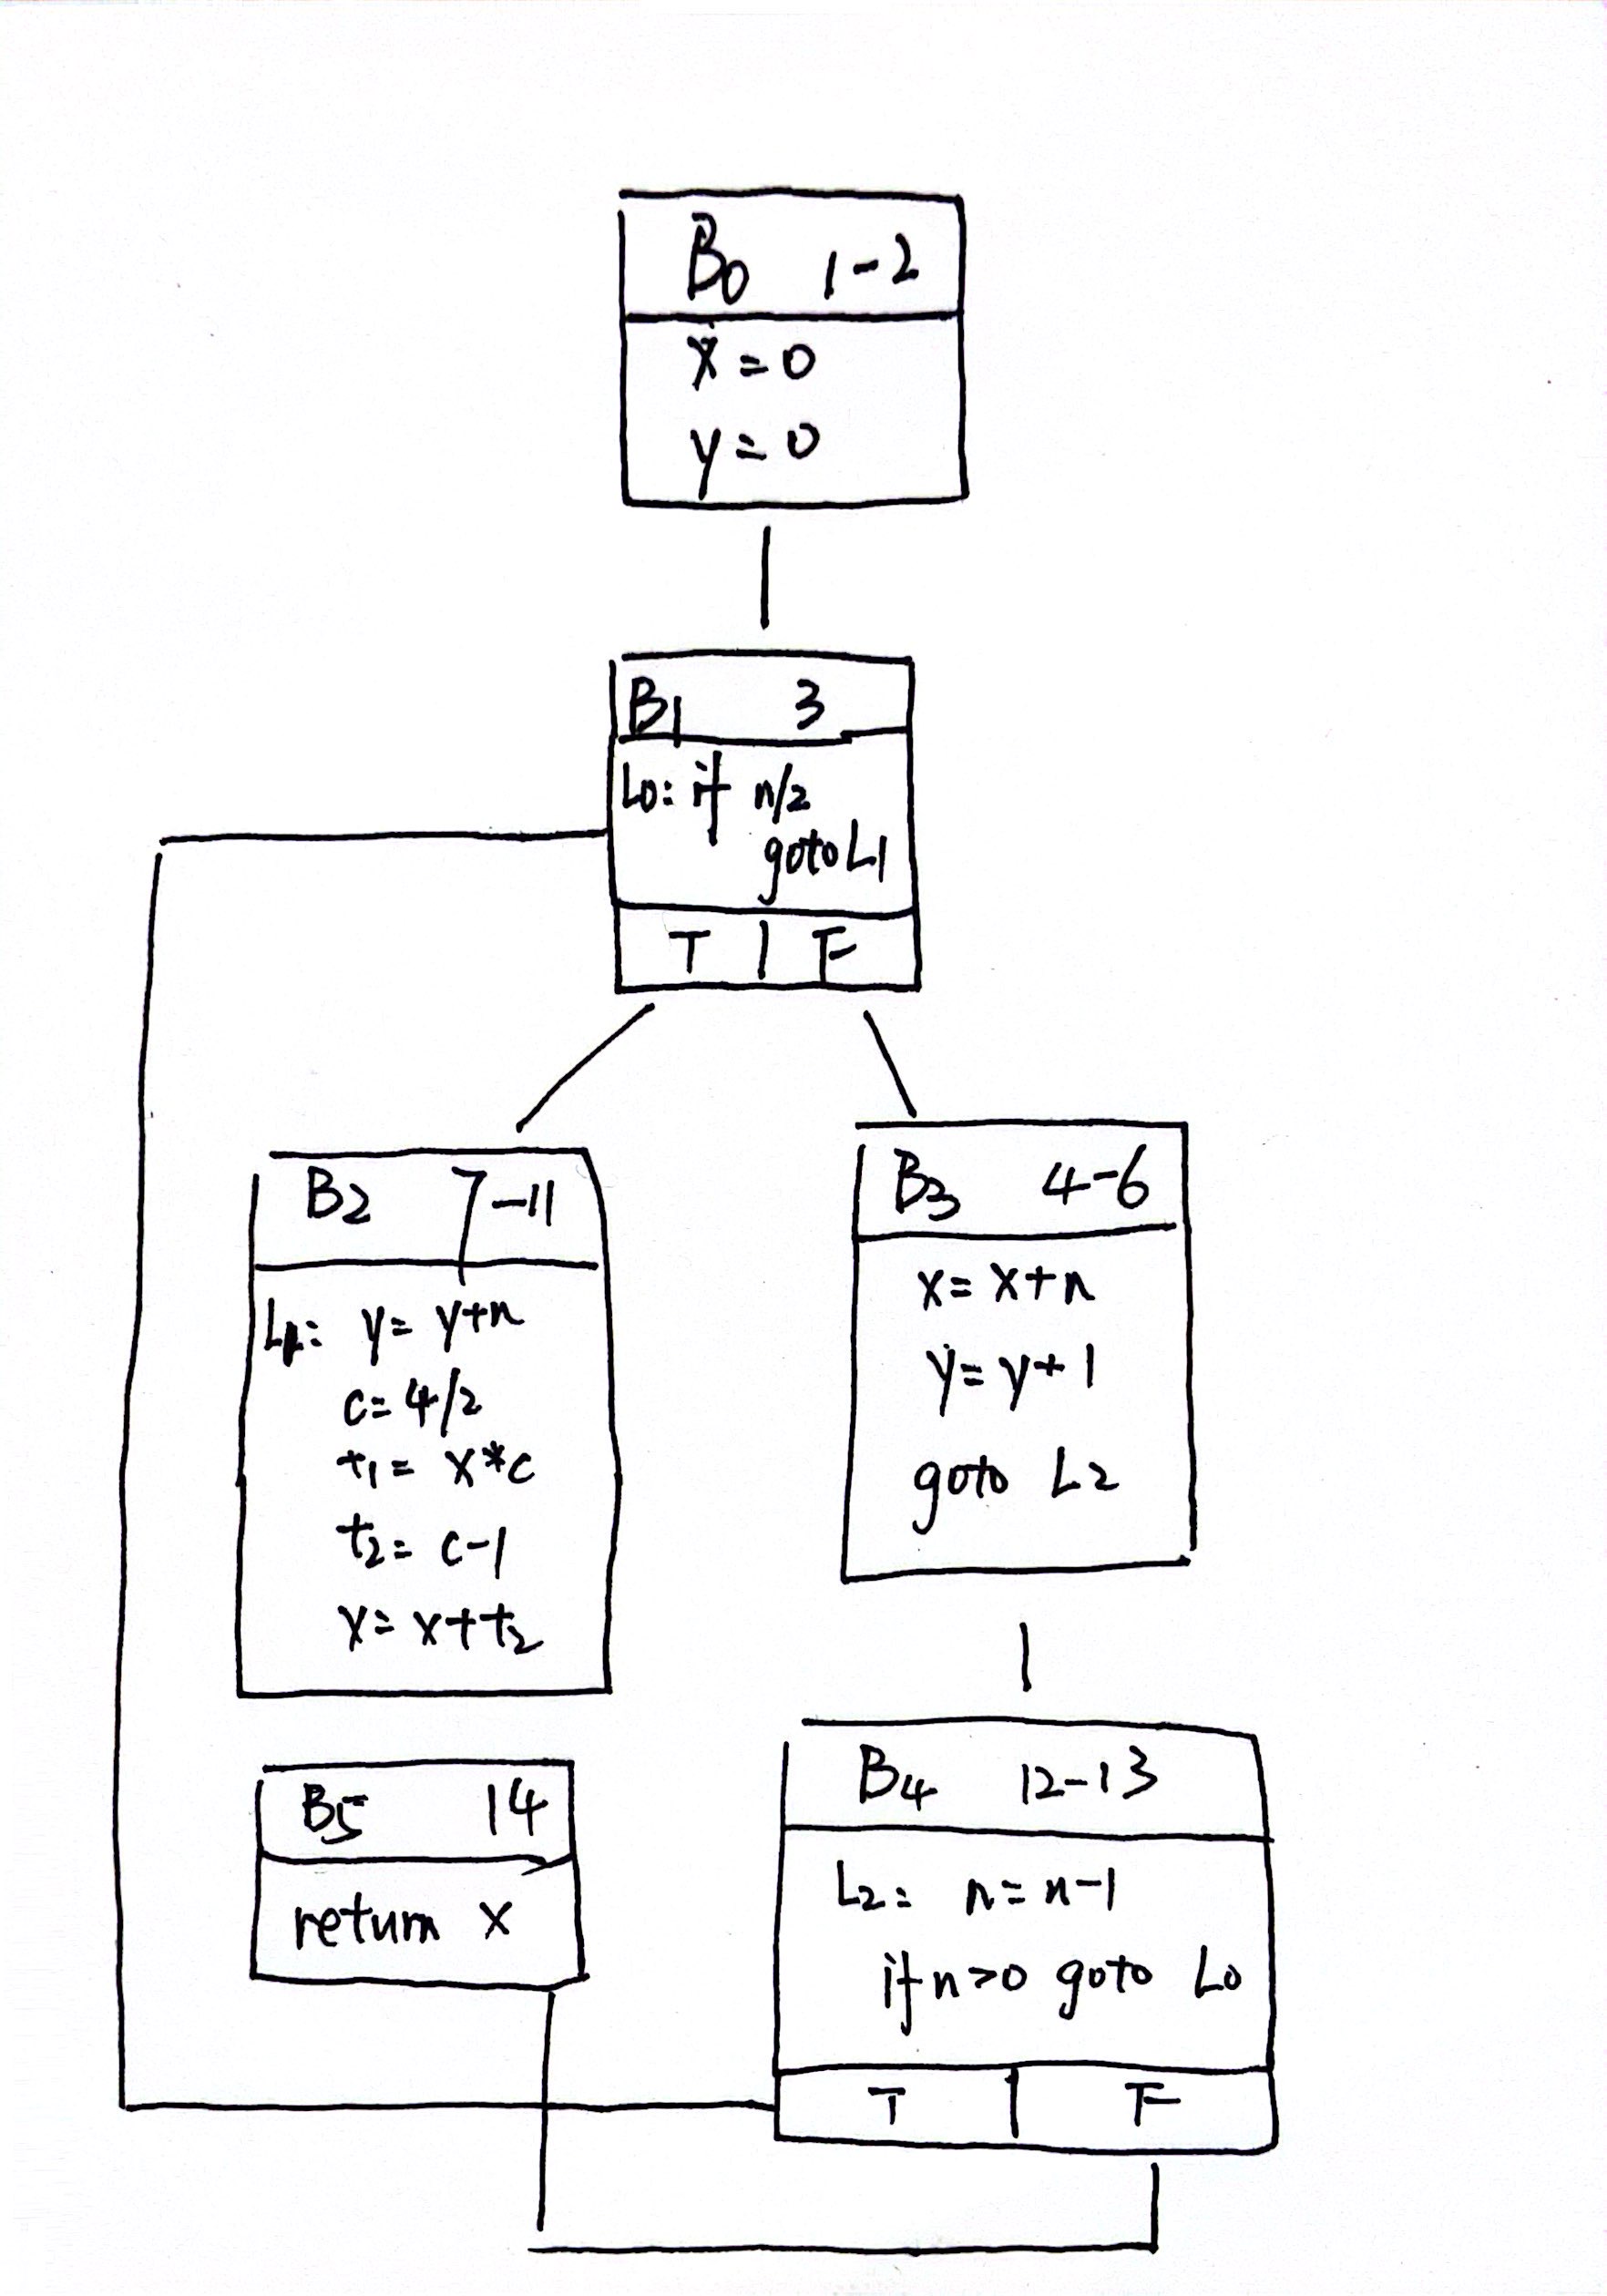 B0 1-2
x=0
y=0
B1 3
L0: if n/2
goto L1
T | F
B2 7-11
L1: y= y+n
c= 4/2
t1= x*c
t2= c-1
x= x+t2
B3 4-6
x= x+n
y= y+1
goto L2
B5 14
return x
B4 12-13
L2: n= n-1
if n>0 goto L0
T | F